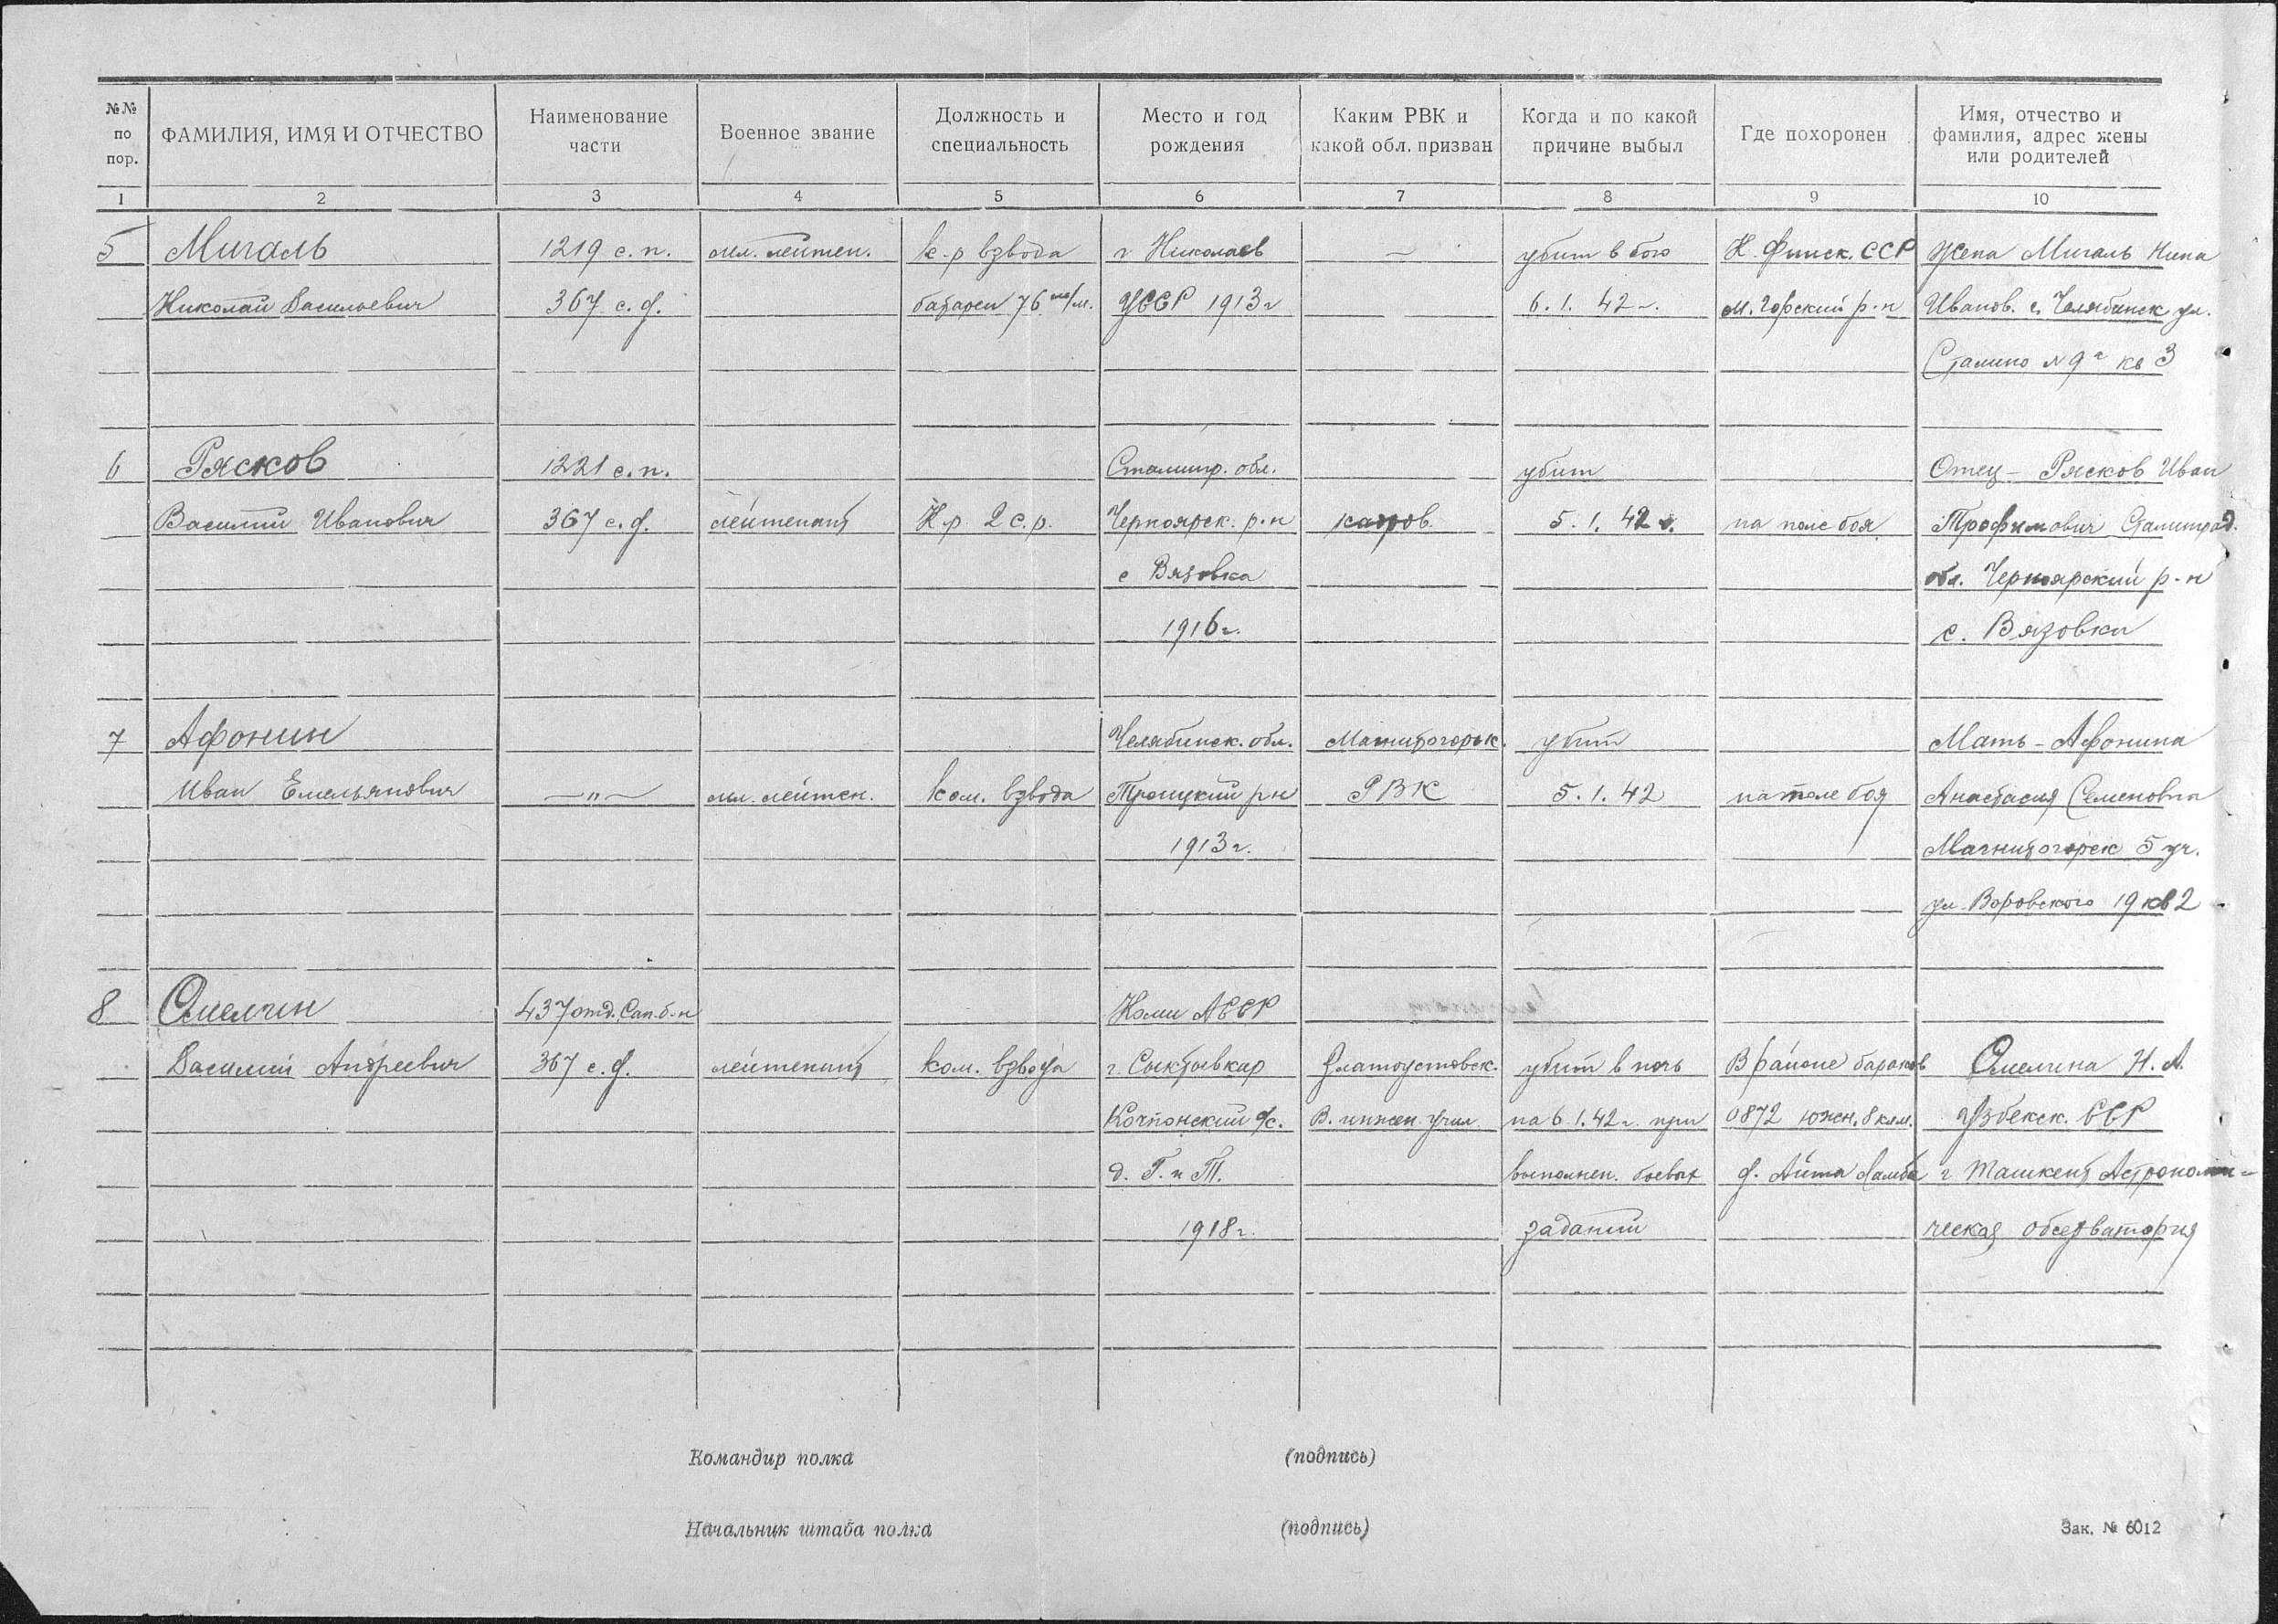 №№ по пор. ФАМИЛИЯ, ИМЯ И ОТЧЕСТВО Наименование части Военное звание Должность и специальность Место и год рождения Каким РВК и какой обл. призван Когда и по какой причине выбыл Где похоронен Имя, отчество и фамилия, адрес жены или родителей
1 2 3 4 5 6 7 8 9 10
5 Мигаль 1219 с. п. мл. лейтен. к-р взвода г Николаев — убит в бою К. Финск. ССР Жена Мигаль Нина
Николай Васильевич 367 с. д. батареи 76 м/м. УССР 1913 г 6. 1. 42 г. М. Горский р-н Иванов. г. Челябинск ул.
Сталина № 9а кв 3
6 Рясков 1221 с. п. Сталингр. обл. убит Отец - Рясков Иван
Василий Иванович 367 с. д. лейтенант К-р 2 с. р. Черноярск. р-н кадров. 5. 1. 42 г. на поле боя Трофимович Сталинград.
с Вязовка обл. Черноярский р-н
1916 г. с. Вязовка
7 Афонин Челябинск. обл. Магнитогорск. убит Мать - Афонина
Иван Емельянович —"— мл. лейтен. ком. взвода Троицкий р-н РВК 5. 1. 42 на поле боя Анастасия Семеновна
1913 г. Магнитогорск 5 уч.
ул. Воровского 19 кв 2
8 Омелчин 437 отд. Сап. б-н Коми АССР
Василий Андреевич 367 с. д. лейтенант ком. взвода г. Сыктывкар Златоустовск. убит в ночь В районе бараков Омелчина Н. А.
Кочпонский с/с. В. инжен. учил на 6. 1. 42 г. при 0872 южн. 8 клм. Узбекск. ССР
д. Г. и Т. выполнен. боевых д. Айта Ламба г Ташкент Астрономи-
1918 г. заданий ческая обсерватория
Командир полка (подпись)
Начальник штаба полка (подпись) Зак. № 6012